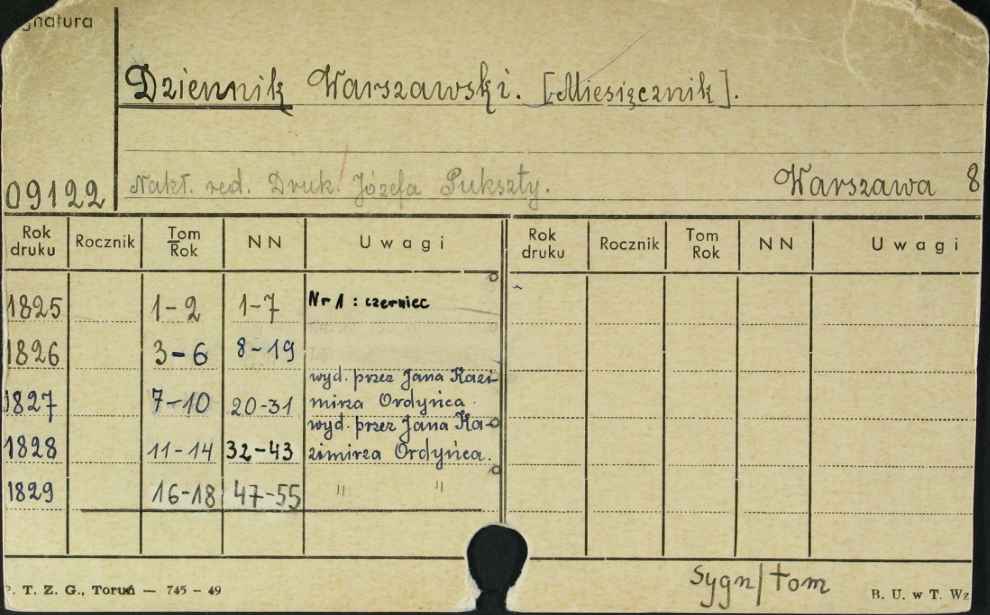 gnatura
Dziennik Warszawski. [Miesięcznik].
09122 Nakł. red. Druk. Józefa Pukszty. Warszawa 8
Rok druku Rocznik Tom Rok NN Uwagi Rok druku Rocznik Tom Rok NN Uwagi
1825 1-2 1-7 Nr 1 : czerwiec
1826 3-6 8-19
wyd. przez Jana Kazi-
1827 7-10 20-31 mirza Ordyńca.
wyd. przez Jana Ka-
1828 11-14 32-43 zimirza Ordyńca.
1829 16-18 47-55 " "
Sygn/tom
P. T. Z. G., Toruń — 745 - 49 B. U. w T. Wz